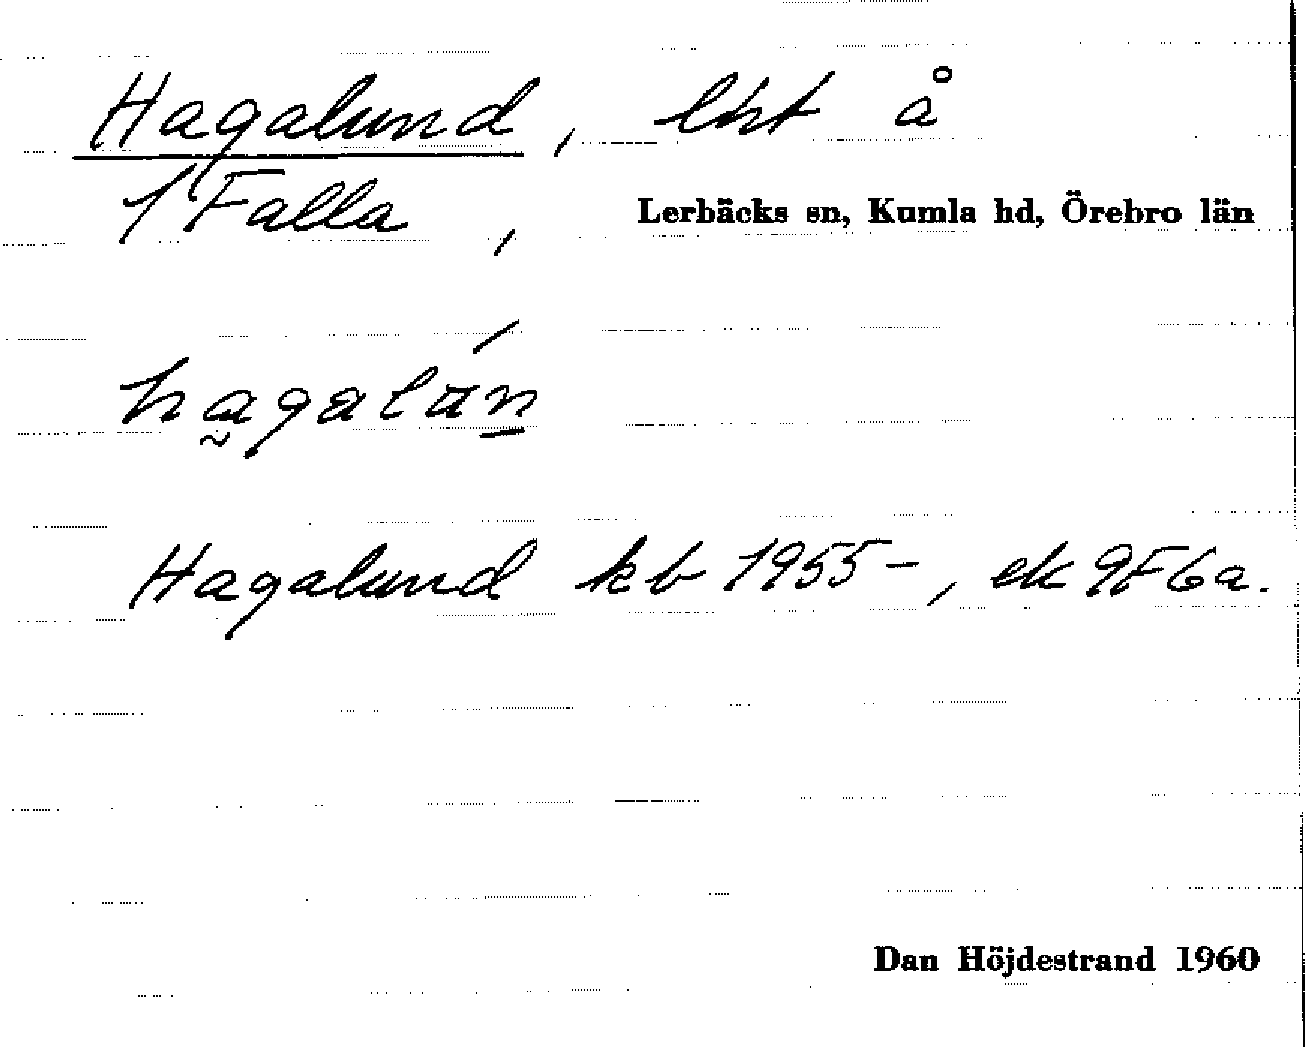 Hagalund, lht å
1 Falla, Lerbäcks sn, Kumla hd, Örebro län
Hagalund kb 1955-, ek 9F6a.
Dan Höjdestrand 1960